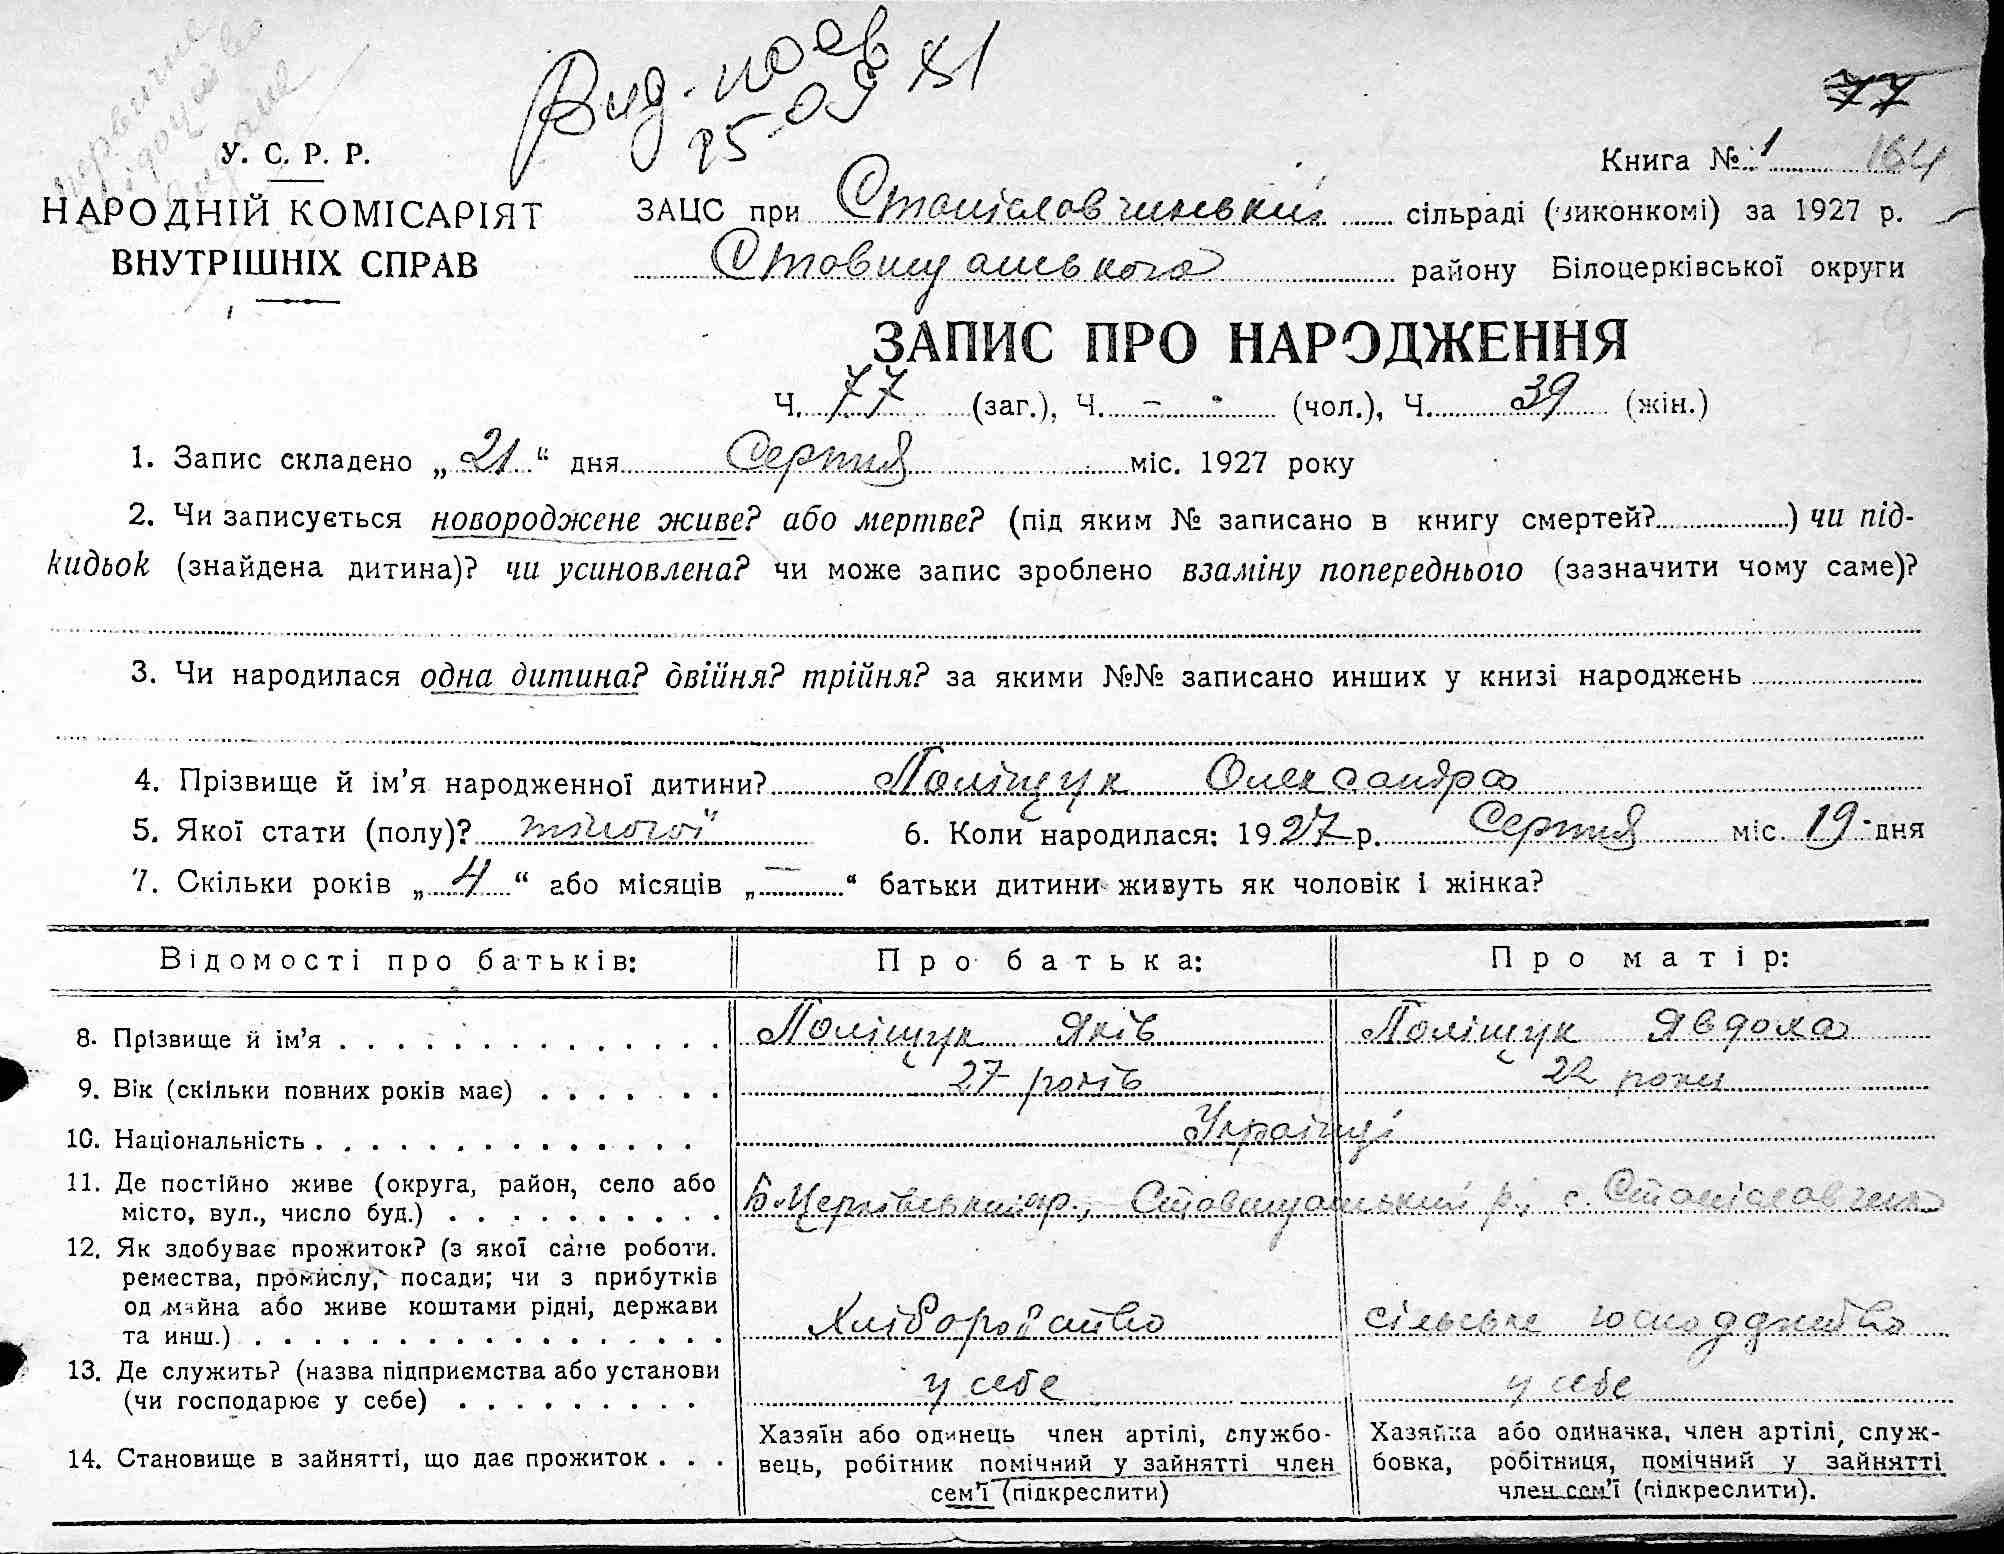 первичне
свідоцтво
видане
Вид. пов
25-05 81
77
У. С. Р. Р.
Книга № 1 164
НАРОДНІЙ КОМІСАРІЯТ
ВНУТРІШНІХ СПРАВ
ЗАЦС при Станіславчинській сільраді (виконкомі) за 1927 р.
Ставищанського району Білоцерківської округи
ЗАПИС ПРО НАРОДЖЕННЯ
Ч. 77 (заг.), Ч. - (чол.), Ч. 39 (жін.)
1. Запис складено „21“ дня Серпня міс. 1927 року
2. Чи записується новороджене живе? або мертве? (під яким № записано в книгу смертей?..........) чи під-
кидьок (знайдена дитина)? чи усиновлена? чи може запис зроблено взаміну попереднього (зазначити чому саме)?
3. Чи народилася одна дитина? двійня? трійня? за якими №№ записано инших у книзі народжень
4. Прізвище й ім’я народженної дитини? Поліщук Олександра
5. Якої стати (полу)? жіночої 6. Коли народилася: 1927 р. Серпня міс. 19 дня
7. Скільки років „4“ або місяців „—“ батьки дитини живуть як чоловік і жінка?
Відомості про батьків: Про батька: Про матір:
8. Прізвище й ім’я Поліщук Яків Поліщук Явдоха
9. Вік (скільки повних років має) 27 років 22 роки
10. Національність Українці
11. Де постійно живе (округа, район, село або
місто, вул., число буд.) Б-Церківський окр., Ставищанський р., с. Станіславчик
12. Як здобуває прожиток? (з якої саме роботи.
ремества, промислу, посади; чи з прибутків
од майна або живе коштами рідні, держави
та инш.) Хліборобство сільське господарство
13. Де служить? (назва підприємства або установи
(чи господарює у себе) у себе у себе
14. Становище в зайнятті, що дає прожиток
Хазяїн або одинець член артілі, службо-
вець, робітник помічний у зайнятті член
сем’ї (підкреслити)
Хазяйка або одиначка, член артілі, служ-
бовка, робітниця, помічний у зайнятті
член сем’ї (підкреслити).